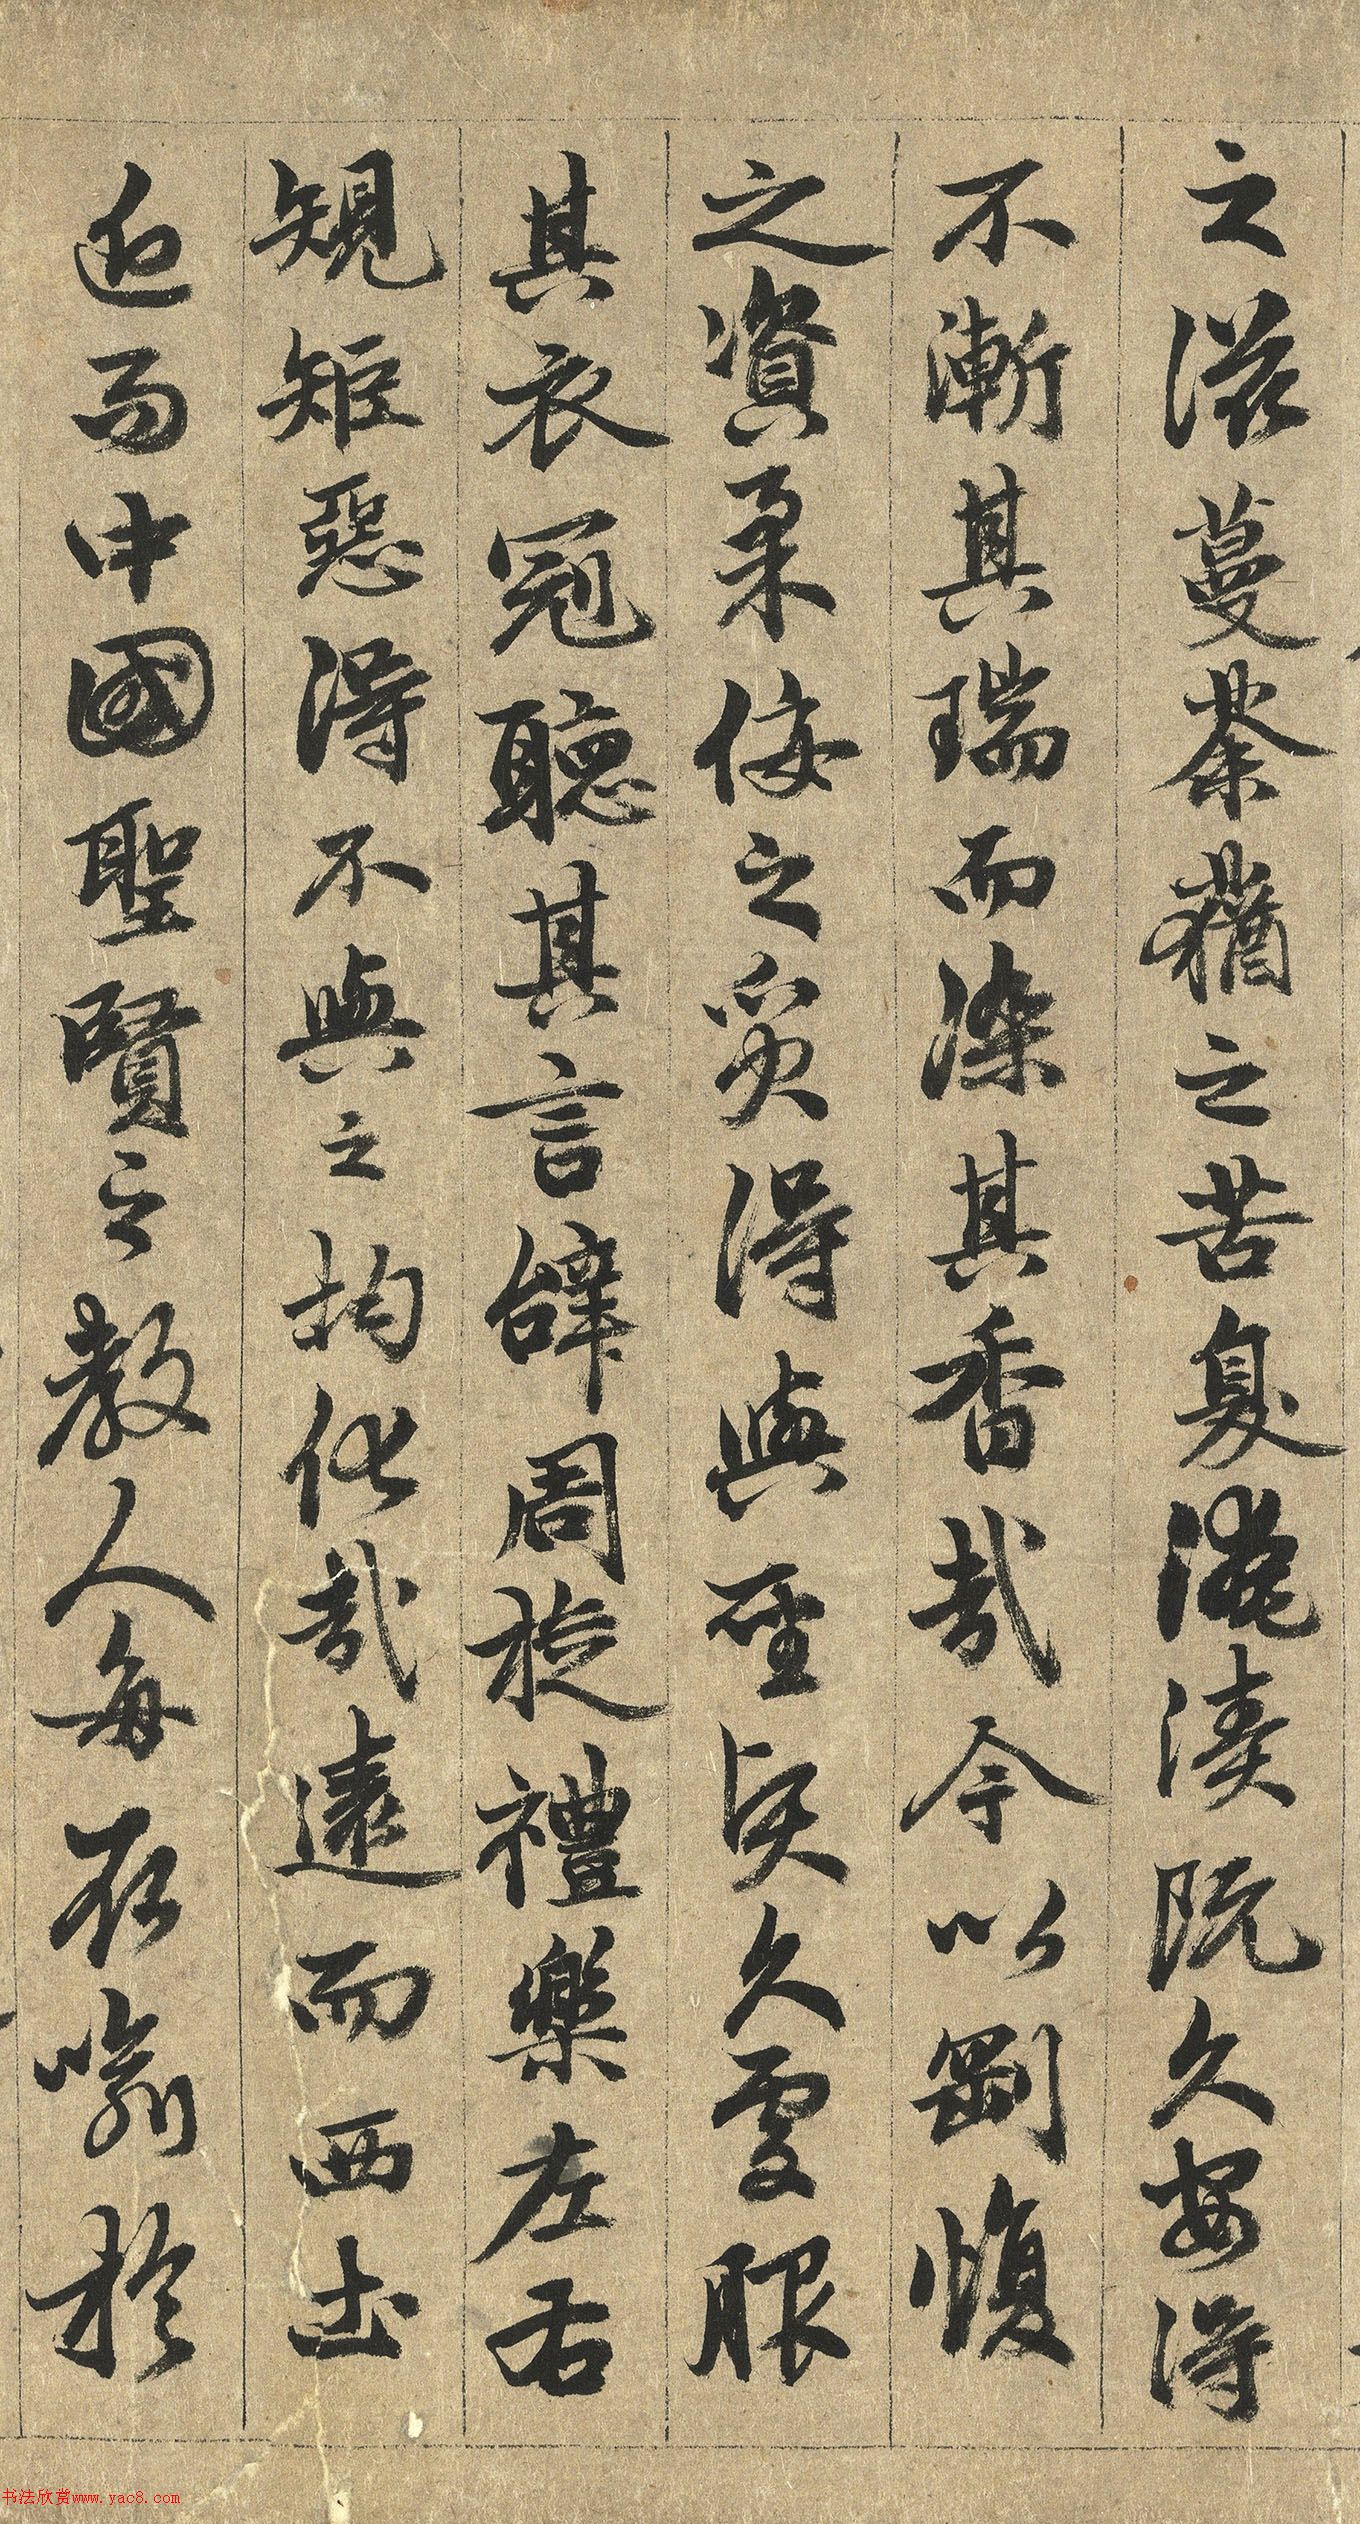 之滋蔓荼蕕之苦臭混湊既久安得
不漸其瑞而染其香哉今以剛愎
之資柔佞之質得與久處服
其衣冠聽其言辭周旋禮樂左右
規矩惡得不與之均化哉遠而西土
近而中國聖賢之教人每存喻於
书法欣赏www.yac8.com